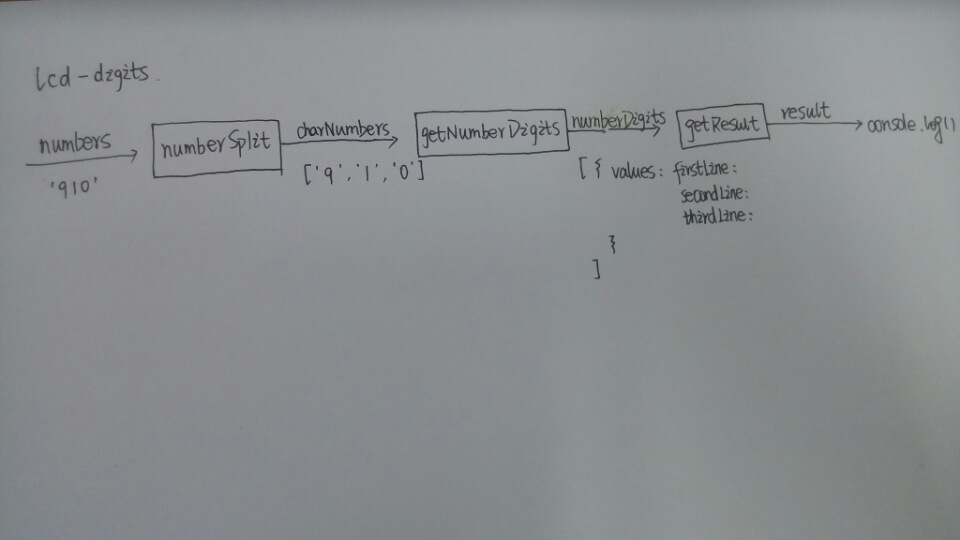 lcd-digits.
numbers
'910'
numberSplit
charNumbers
['9','1','0']
getNumberDigits
numberDigits
[{ values: firstLine:
secondLine:
thirdLine:
}
]
getResult
result
console.log()